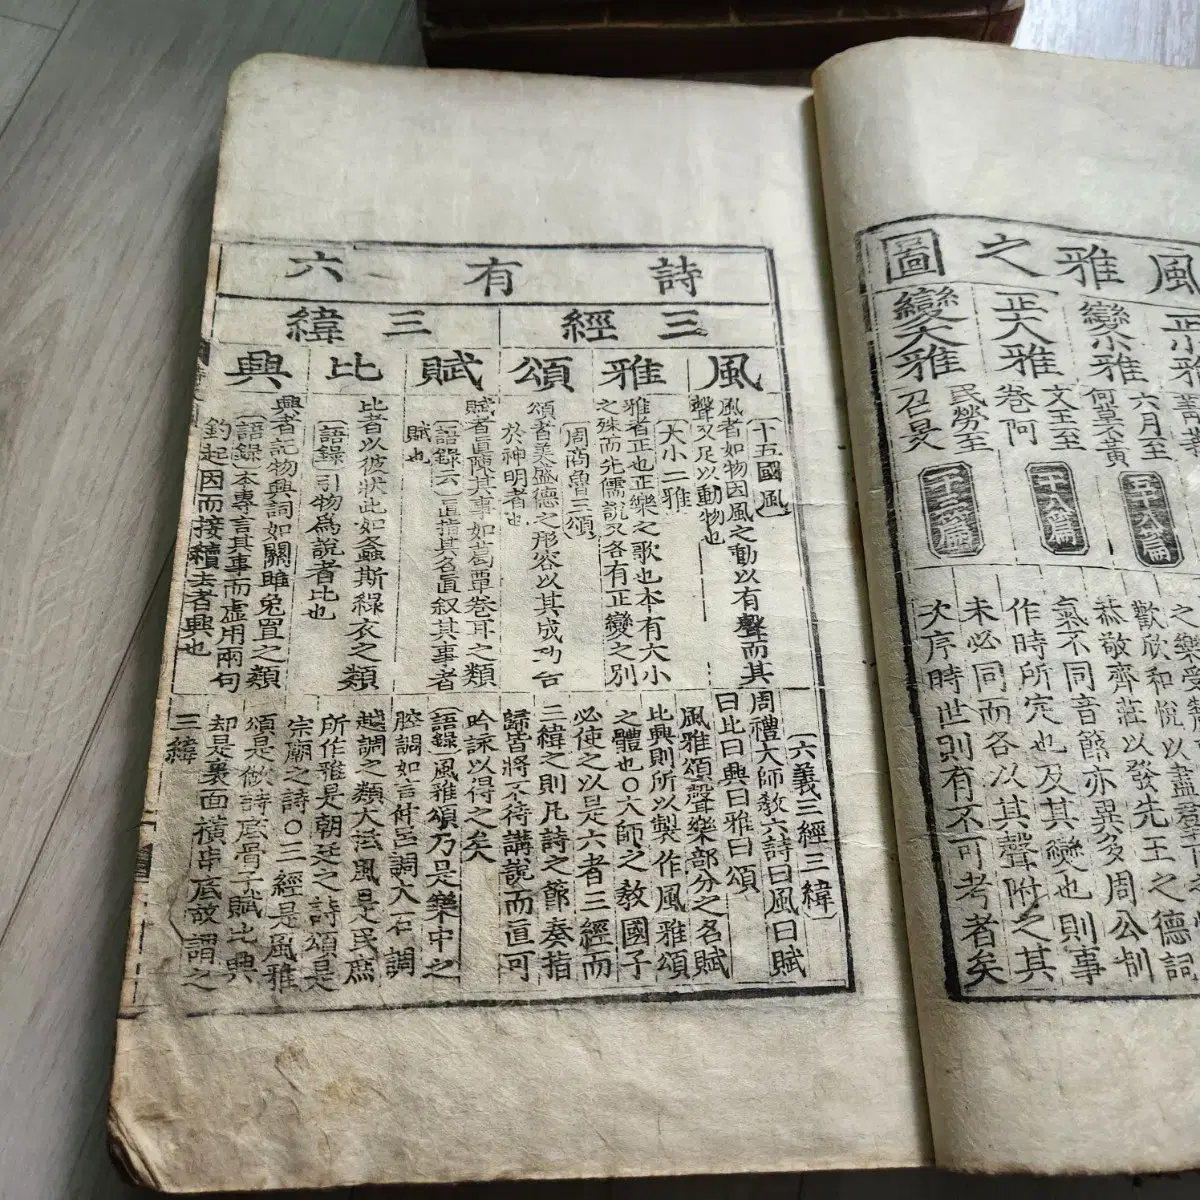 風雅之圖
正小雅
變小雅
六月至
何草不黃
五十八篇
正大雅
文王至
卷阿
十八篇
變大雅
民勞至
召旻
十三篇
歡欣和悅以盡
恭敬齊莊以發先王之德詞
氣不同音節亦異多周公制
作時所定也及其變也則事
未必同而各以其聲附之其
次序時世則有不可考者矣
詩有六
三經
三緯
風
雅
頌
賦
比
興
十五國風
風者如物因風之動以有聲而其
聲又足以動物也
大小二雅
雅者正也正樂之歌也本有大小
之殊而先儒說又各有正變之別
周商魯三頌
頌者美盛德之形容以其成功告
於神明者也
賦者直陳其事如葛覃卷耳之類
語錄云直指其名直叙其事者
賦也
比者以彼狀此如螽斯綠衣之類
語錄引物爲說者比也
興者記物興詞如關雎兔罝之類
語錄本專言其事而虛用兩句
釣起因而接續去者興也
六義三經三緯
周禮大師敎六詩曰風曰賦
曰比曰興曰雅曰頌
風雅頌聲樂部分之名賦
比興則所以製作風雅頌
之體也〇大師之敎國子
必使之以是六者三經而
三緯之則凡詩之節奏指
歸皆將不待講說而直可
吟詠以得之矣
語錄風雅頌乃是樂中之
腔調如言仲呂調大石調
越調之類大抵風是民庶
所作雅是朝廷之詩頌是
宗廟之詩〇三經是風雅
頌是做詩底骨子賦比興
却是裏面橫串底故謂之
三緯